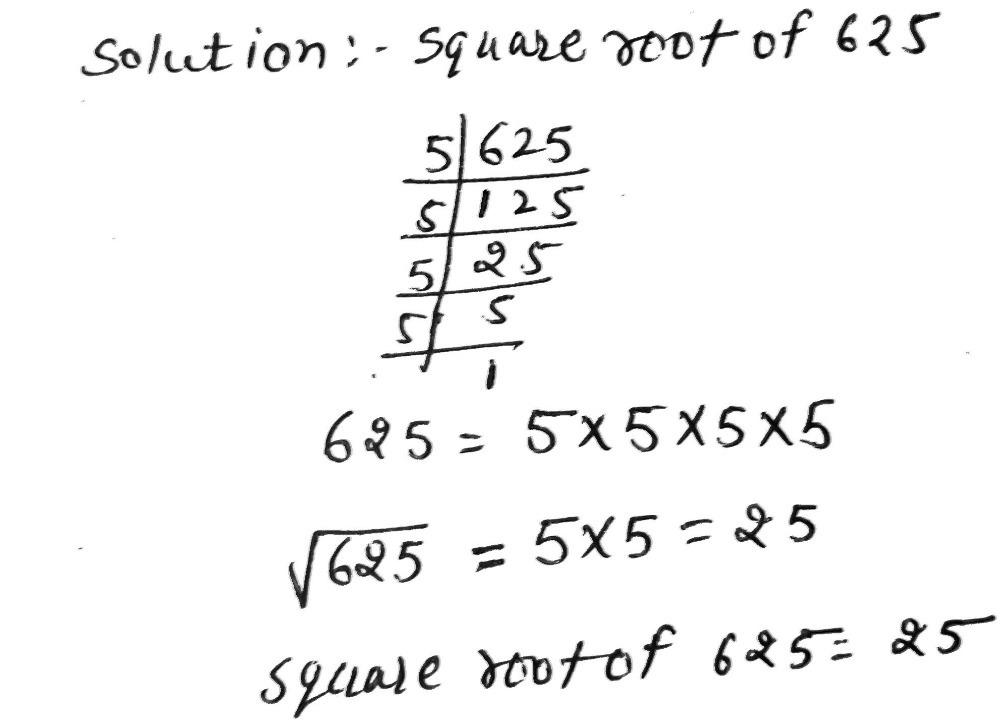 Solution :- square root of 625
5 | 625
5 | 125
5 | 25
5 | 5
1
625 = 5×5×5×5
√625 = 5×5 = 25
square root of 625 = 25